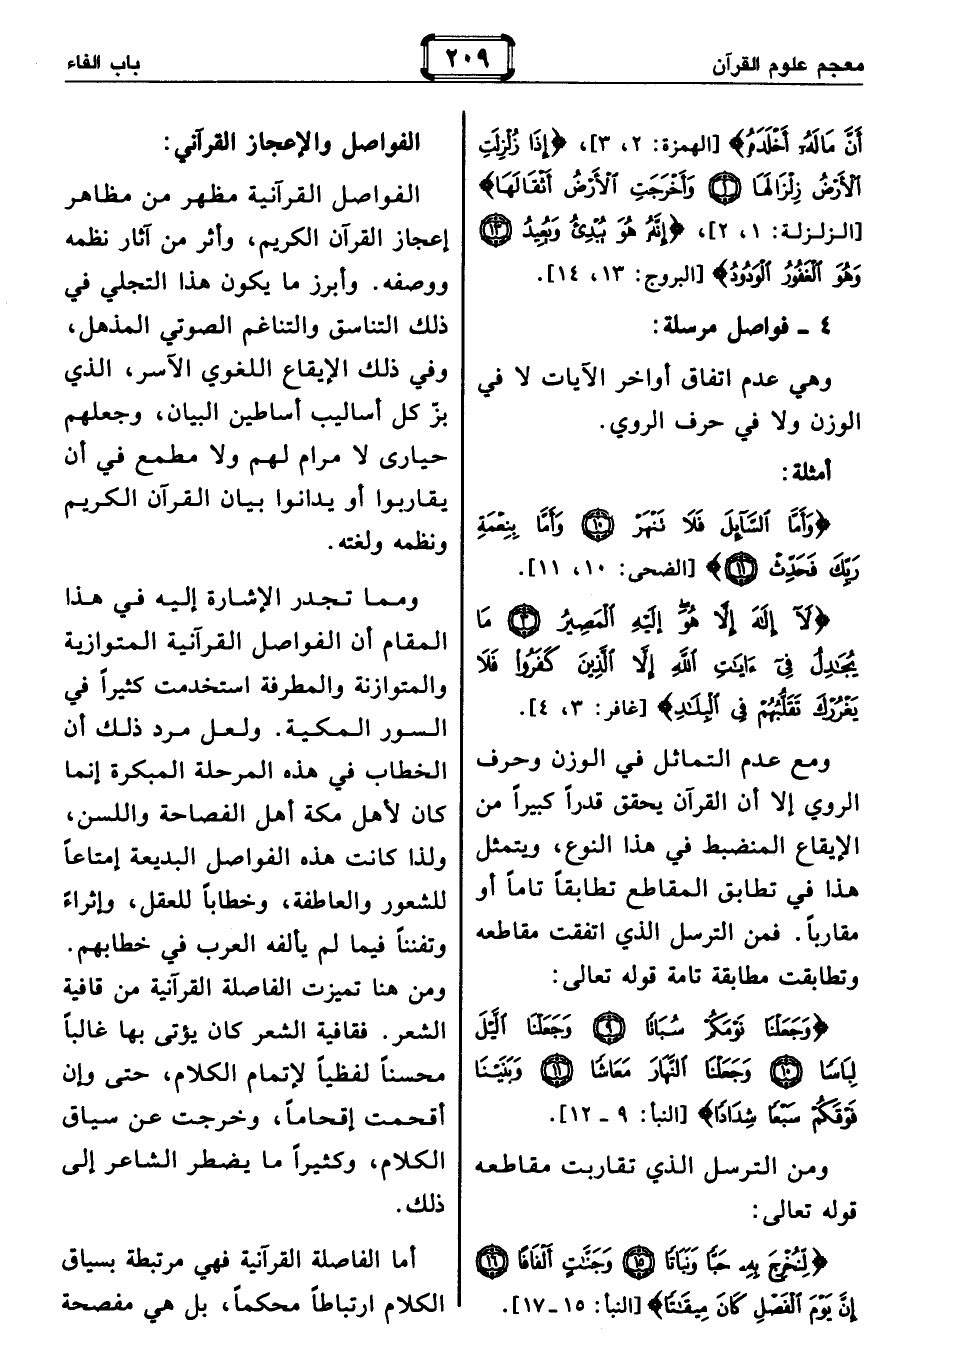 معجم علوم القرآن
٢٠٩
باب الفاء
أَنَّ مَالَهُۥٓ أَخْلَدَهُ﴾ [الهمزة: ٢، ٣]، ﴿إِذَا زُلْزِلَتِ
ٱلْأَرْضُ زِلْزَالَهَا ١ وَأَخْرَجَتِ ٱلْأَرْضُ أَثْقَالَهَا﴾
[الزلزلة: ١، ٢]، ﴿إِنَّهُۥ هُوَ يُبْدِئُ وَيُعِيدُ ١٣
وَهُوَ ٱلْغَفُورُ ٱلْوَدُودُ﴾ [البروج: ١٣، ١٤].
٤ ـ فواصل مرسلة:
وهي عدم اتفاق أواخر الآيات لا في
الوزن ولا في حرف الروي.
أمثلة:
﴿وَأَمَّا ٱلسَّآئِلَ فَلَا تَنْهَرْ ١٠ وَأَمَّا بِنِعْمَةِ
رَبِّكَ فَحَدِّثْ ١١﴾ [الضحى: ١٠، ١١].
﴿لَآ إِلَٰهَ إِلَّا هُوَۖ إِلَيْهِ ٱلْمَصِيرُ ٣ مَا
يُجَٰدِلُ فِىٓ ءَايَٰتِ ٱللَّهِ إِلَّا ٱلَّذِينَ كَفَرُوا۟ فَلَا
يَغْرُرْكَ تَقَلُّبُهُمْ فِى ٱلْبِلَٰدِ﴾ [غافر: ٣، ٤].
ومع عدم التماثل في الوزن وحرف
الروي إلا أن القرآن يحقق قدراً كبيراً من
الإيقاع المنضبط في هذا النوع، ويتمثل
هذا في تطابق المقاطع تطابقاً تاماً أو
مقارباً. فمن الترسل الذي اتفقت مقاطعه
وتطابقت مطابقة تامة قوله تعالى:
﴿وَجَعَلْنَا نَوْمَكُمْ سُبَاتًا ٩ وَجَعَلْنَا ٱلَّيْلَ
لِبَاسًا ١٠ وَجَعَلْنَا ٱلنَّهَارَ مَعَاشًا ١١ وَبَنَيْنَا
فَوْقَكُمْ سَبْعًا شِدَادًا﴾ [النبأ: ٩ ـ ١٢].
ومن الترسل الذي تقاربت مقاطعه
قوله تعالى:
﴿لِّنُخْرِجَ بِهِۦ حَبًّا وَنَبَاتًا ١٥ وَجَنَّٰتٍ أَلْفَافًا ١٦
إِنَّ يَوْمَ ٱلْفَصْلِ كَانَ مِيقَٰتًا﴾ [النبأ: ١٥ ـ ١٧].
الفواصل والإعجاز القرآني:
الفواصل القرآنية مظهر من مظاهر
إعجاز القرآن الكريم، وأثر من آثار نظمه
ووصفه. وأبرز ما يكون هذا التجلي في
ذلك التناسق والتناغم الصوتي المذهل،
وفي ذلك الإيقاع اللغوي الآسر، الذي
بزّ كل أساليب أساطين البيان، وجعلهم
حيارى لا مرام لهم ولا مطمع في أن
يقاربوا أو يدانوا بيان القرآن الكريم
ونظمه ولغته.
ومما تجدر الإشارة إليه في هذا
المقام أن الفواصل القرآنية المتوازية
والمتوازنة والمطرفة استخدمت كثيراً في
السور المكية. ولعل مرد ذلك أن
الخطاب في هذه المرحلة المبكرة إنما
كان لأهل مكة أهل الفصاحة واللسن،
ولذا كانت هذه الفواصل البديعة إمتاعاً
للشعور والعاطفة، وخطاباً للعقل، وإثراءً
وتفنناً فيما لم يألفه العرب في خطابهم.
ومن هنا تميزت الفاصلة القرآنية من قافية
الشعر. فقافية الشعر كان يؤتى بها غالباً
محسناً لفظياً لإتمام الكلام، حتى وإن
أقحمت إقحاماً، وخرجت عن سياق
الكلام، وكثيراً ما يضطر الشاعر إلى
ذلك.
أما الفاصلة القرآنية فهي مرتبطة بسياق
الكلام ارتباطاً محكماً، بل هي مفصحة